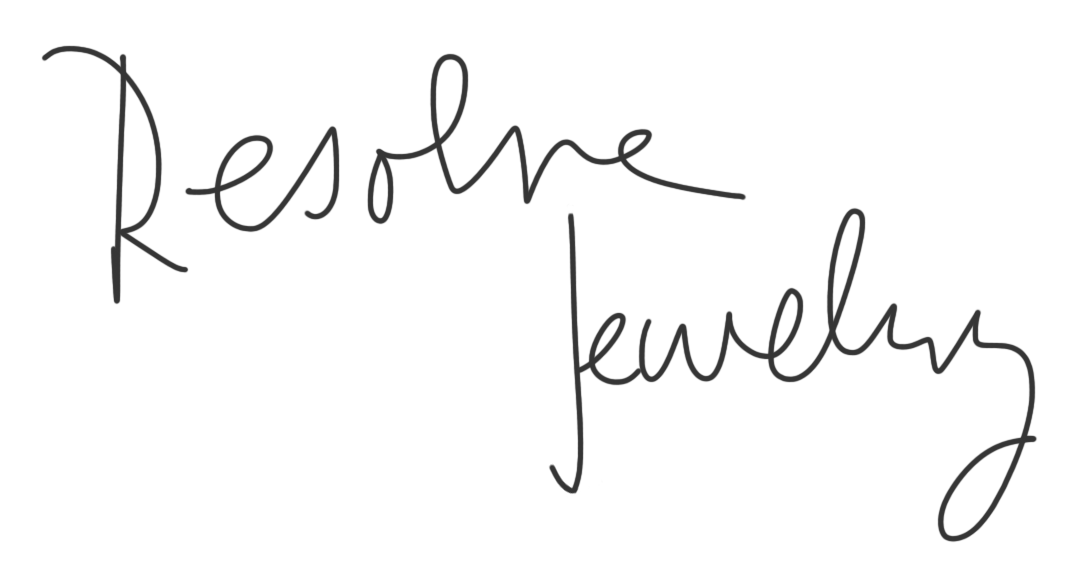 Resolve
Jewelry